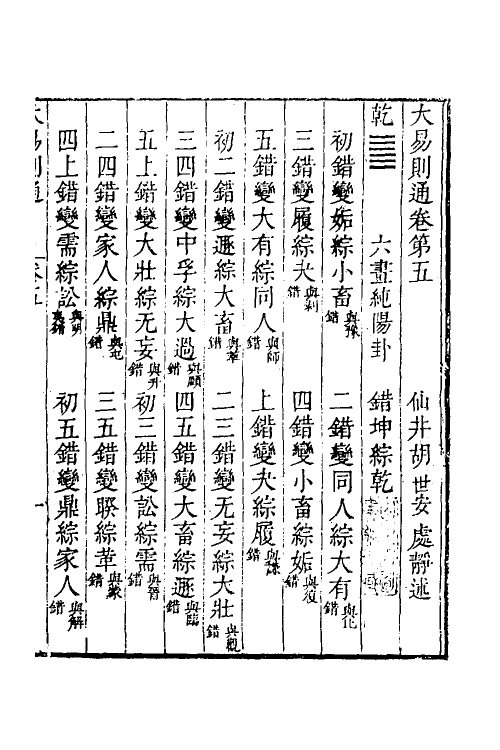 大易則通卷第五　仙井胡世安處靜述
乾　六畫純陽卦　錯坤綜乾
初錯變姤綜小畜與豫錯　二錯變同人綜大有與比錯
三錯變履綜夬與剥錯　四錯變小畜綜姤與復錯
五錯變大有綜同人與師錯　上錯變夬綜履與謙錯
初二錯變遯綜大畜與萃錯　二三錯變无妄綜大壯與觀錯
三四錯變中孚綜大過與頤錯　四五錯變大畜綜遯與臨錯
五上錯變大壯綜无妄與升錯　初三錯變訟綜需與晉錯
二四錯變家人綜鼎與屯錯　三五錯變睽綜革與蒙錯
四上錯變需綜訟與明夷錯　初五錯變鼎綜家人與解錯
大易則通　卷五　一